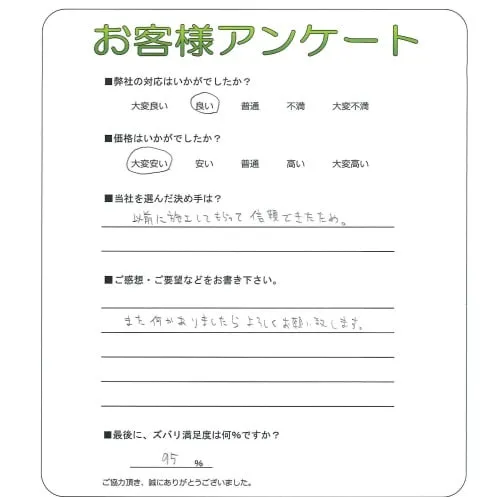 お客様アンケート
■弊社の対応はいかがでしたか？
大変良い 良い 普通 不満 大変不満
■価格はいかがでしたか？
大変安い 安い 普通 高い 大変高い
■当社を選んだ決め手は？
以前に施工してもらって信頼できたため。
■ご感想・ご要望などをお書き下さい。
また何かありましたらよろしくお願い致します。
■最後に、ズバリ満足度は何%ですか？
95 %
ご協力頂き、誠にありがとうございました。